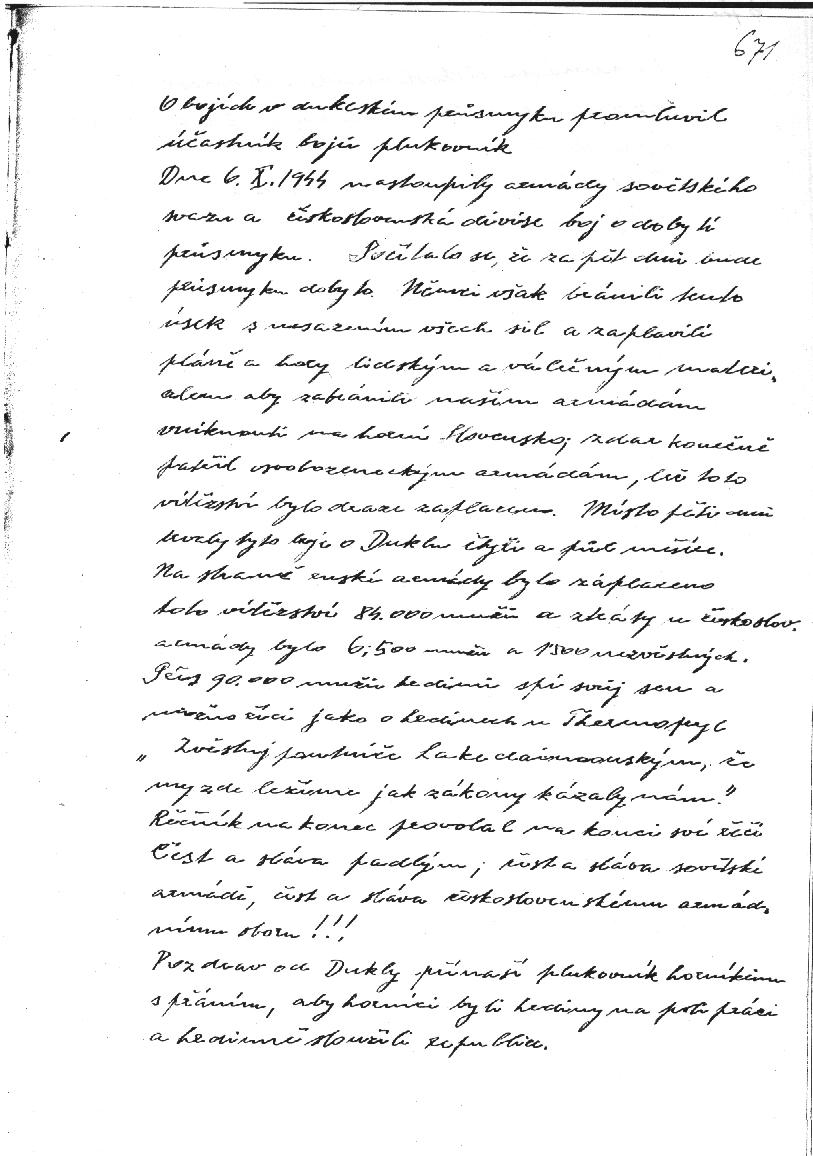 671
O bojích v dukelském průsmyku promluvil
účastník bojů plukovník
Dne 6. X. 1944 nastoupily armády sovětského
svazu a československá divise boj o dobytí
průsmyku. Počítalo se, že za pět dnů bude
průsmyku dobyto. Němci však bránili tento
úsek s nasazením všech sil a zaplavili
pláně a hory lidským a válečným materi-
alem aby zabránili našim armádám
vniknouti na horní Slovensko; zdar konečně
patřil osvobozeneckým armádám, leč toto
vítězství bylo draze zaplaceno. Místo pěti dnů
trvaly tyto boje o Duklu čtyři a půl měsíce.
Na straně ruské armády bylo záplaceno
toto vítězství 84.000 muži a ztráty u českoslov.
armády bylo 6,500 mužů a 1500 nezvěstných.
Přes 90.000 mužů hrdinů spí svůj sen a
možno říci jako o hrdinech u Thermopyl
„Zvěstuj poutníče Lakedaimonským, že
my zde ležíme jak zákony kázaly nám."
Řečník na konec provolal na konci své řeči
Čest a sláva padlým; čest a sláva sovětské
armádě, čest a sláva československému armád-
nímu sboru!!!
Pozdrav od Dukly přináší plukovník horníkům
s přáním, aby horníci byli hrdiny na poli práci
a hrdinně sloužili republice.